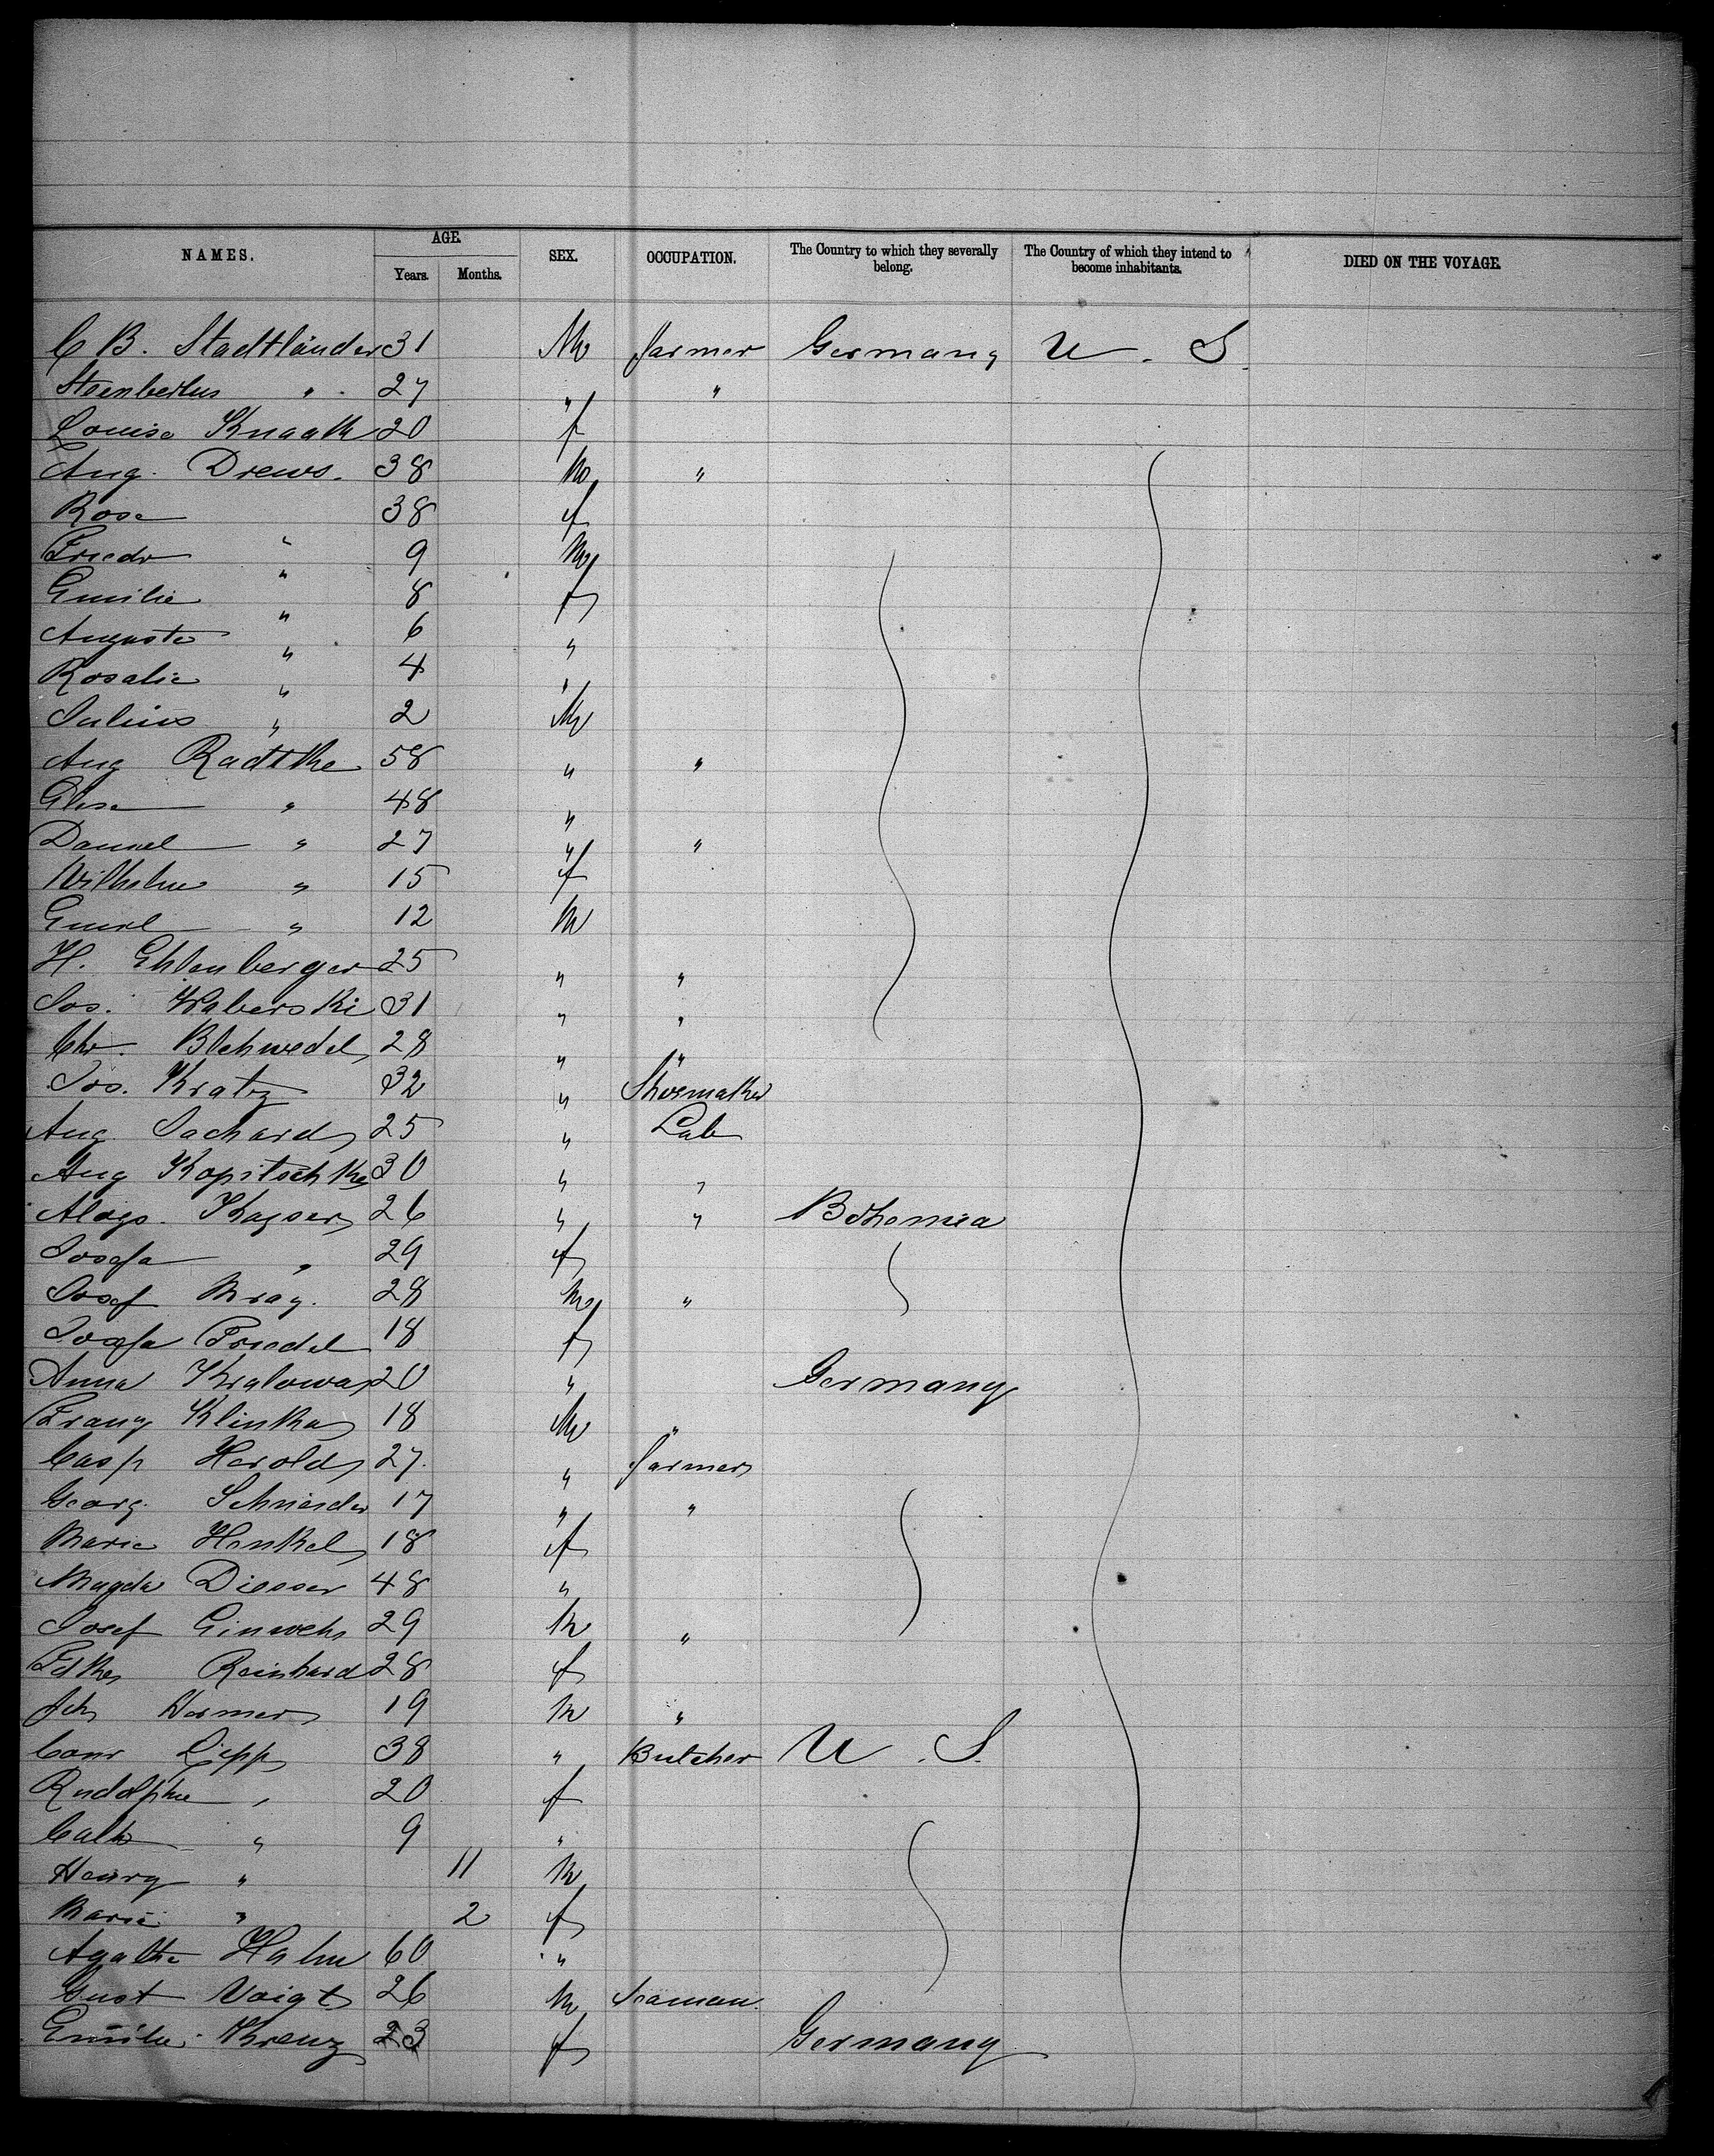 NAMES. AGE. SEX. OCCUPATION. The Country to which they severally belong. The Country of which they intend to become inhabitants. DIED ON THE VOYAGE.
Years. Months.
C B. Stadtländer 31 M farmer Germany U. S.
" 27 " "
Louise Knaak 20 f
Aug. Drews. 38 M "
Rosa " 38 f
Friedr " 9 M
Emilie " 8 f
Auguste " 6 "
Rosalie " 4 "
Julius " 2 M
Aug Radtke 58 " "
Elise " 48 "
Daniel " 27 " "
Wilhelm " 15 f
Emil " 12 M
H. Ehlenberger 25 " "
Jos. Waberski 31 " "
Chr. 28 " "
Jos. Kratz 32 " Shoemaker
Aug. Sachard 25 " Lab
Aug Kopitschke 30 " "
Aloys. Kayser 26 " " Bohemia
Josefa " 29 f
Josef 28 M "
Josefa Friedel 18 f
Anna Kralowa 20 " Germany
Franz Klinka 18 M "
Casp Herold 27. " farmer
Georg. Schneider 17 " "
Marie Henkel 18 f
Magda Diesser 48 "
Josef 29 M "
Reinhard 28 f
Joh Hermer 19 M "
Conr Lipp 38 " Butcher U. S.
Rudolphine " 20 f
Cath " 9 "
Henry " 11 M
Maria " 2 f
Agathe Hahn 60 "
Gust Voigt 26 M Seaman.
Emilie Krenz 23 f Germany